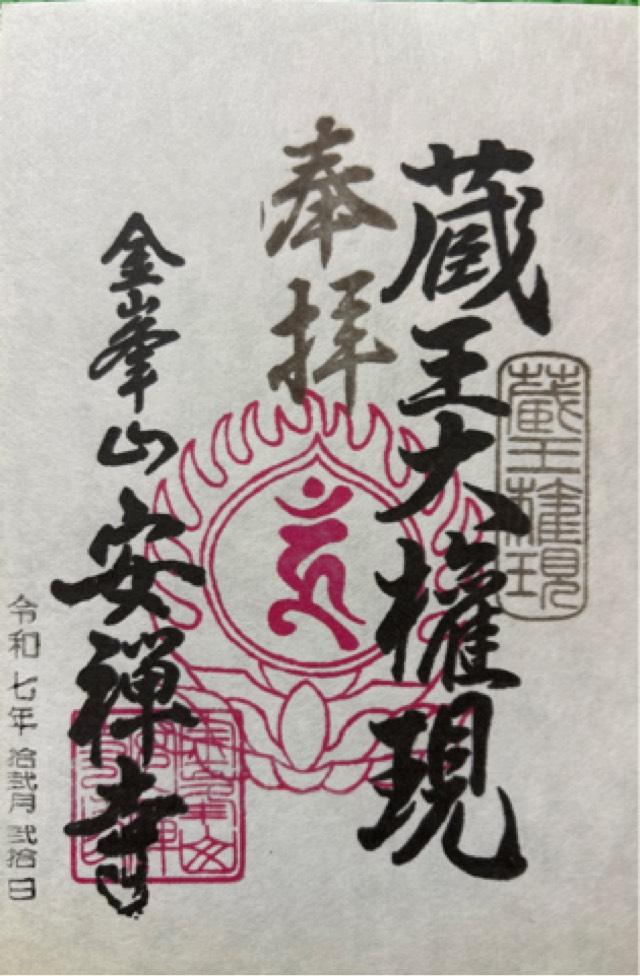 蔵王大権現
蔵王権現
奉拝
金峯山安禅寺
令和七年拾弐月弐拾日